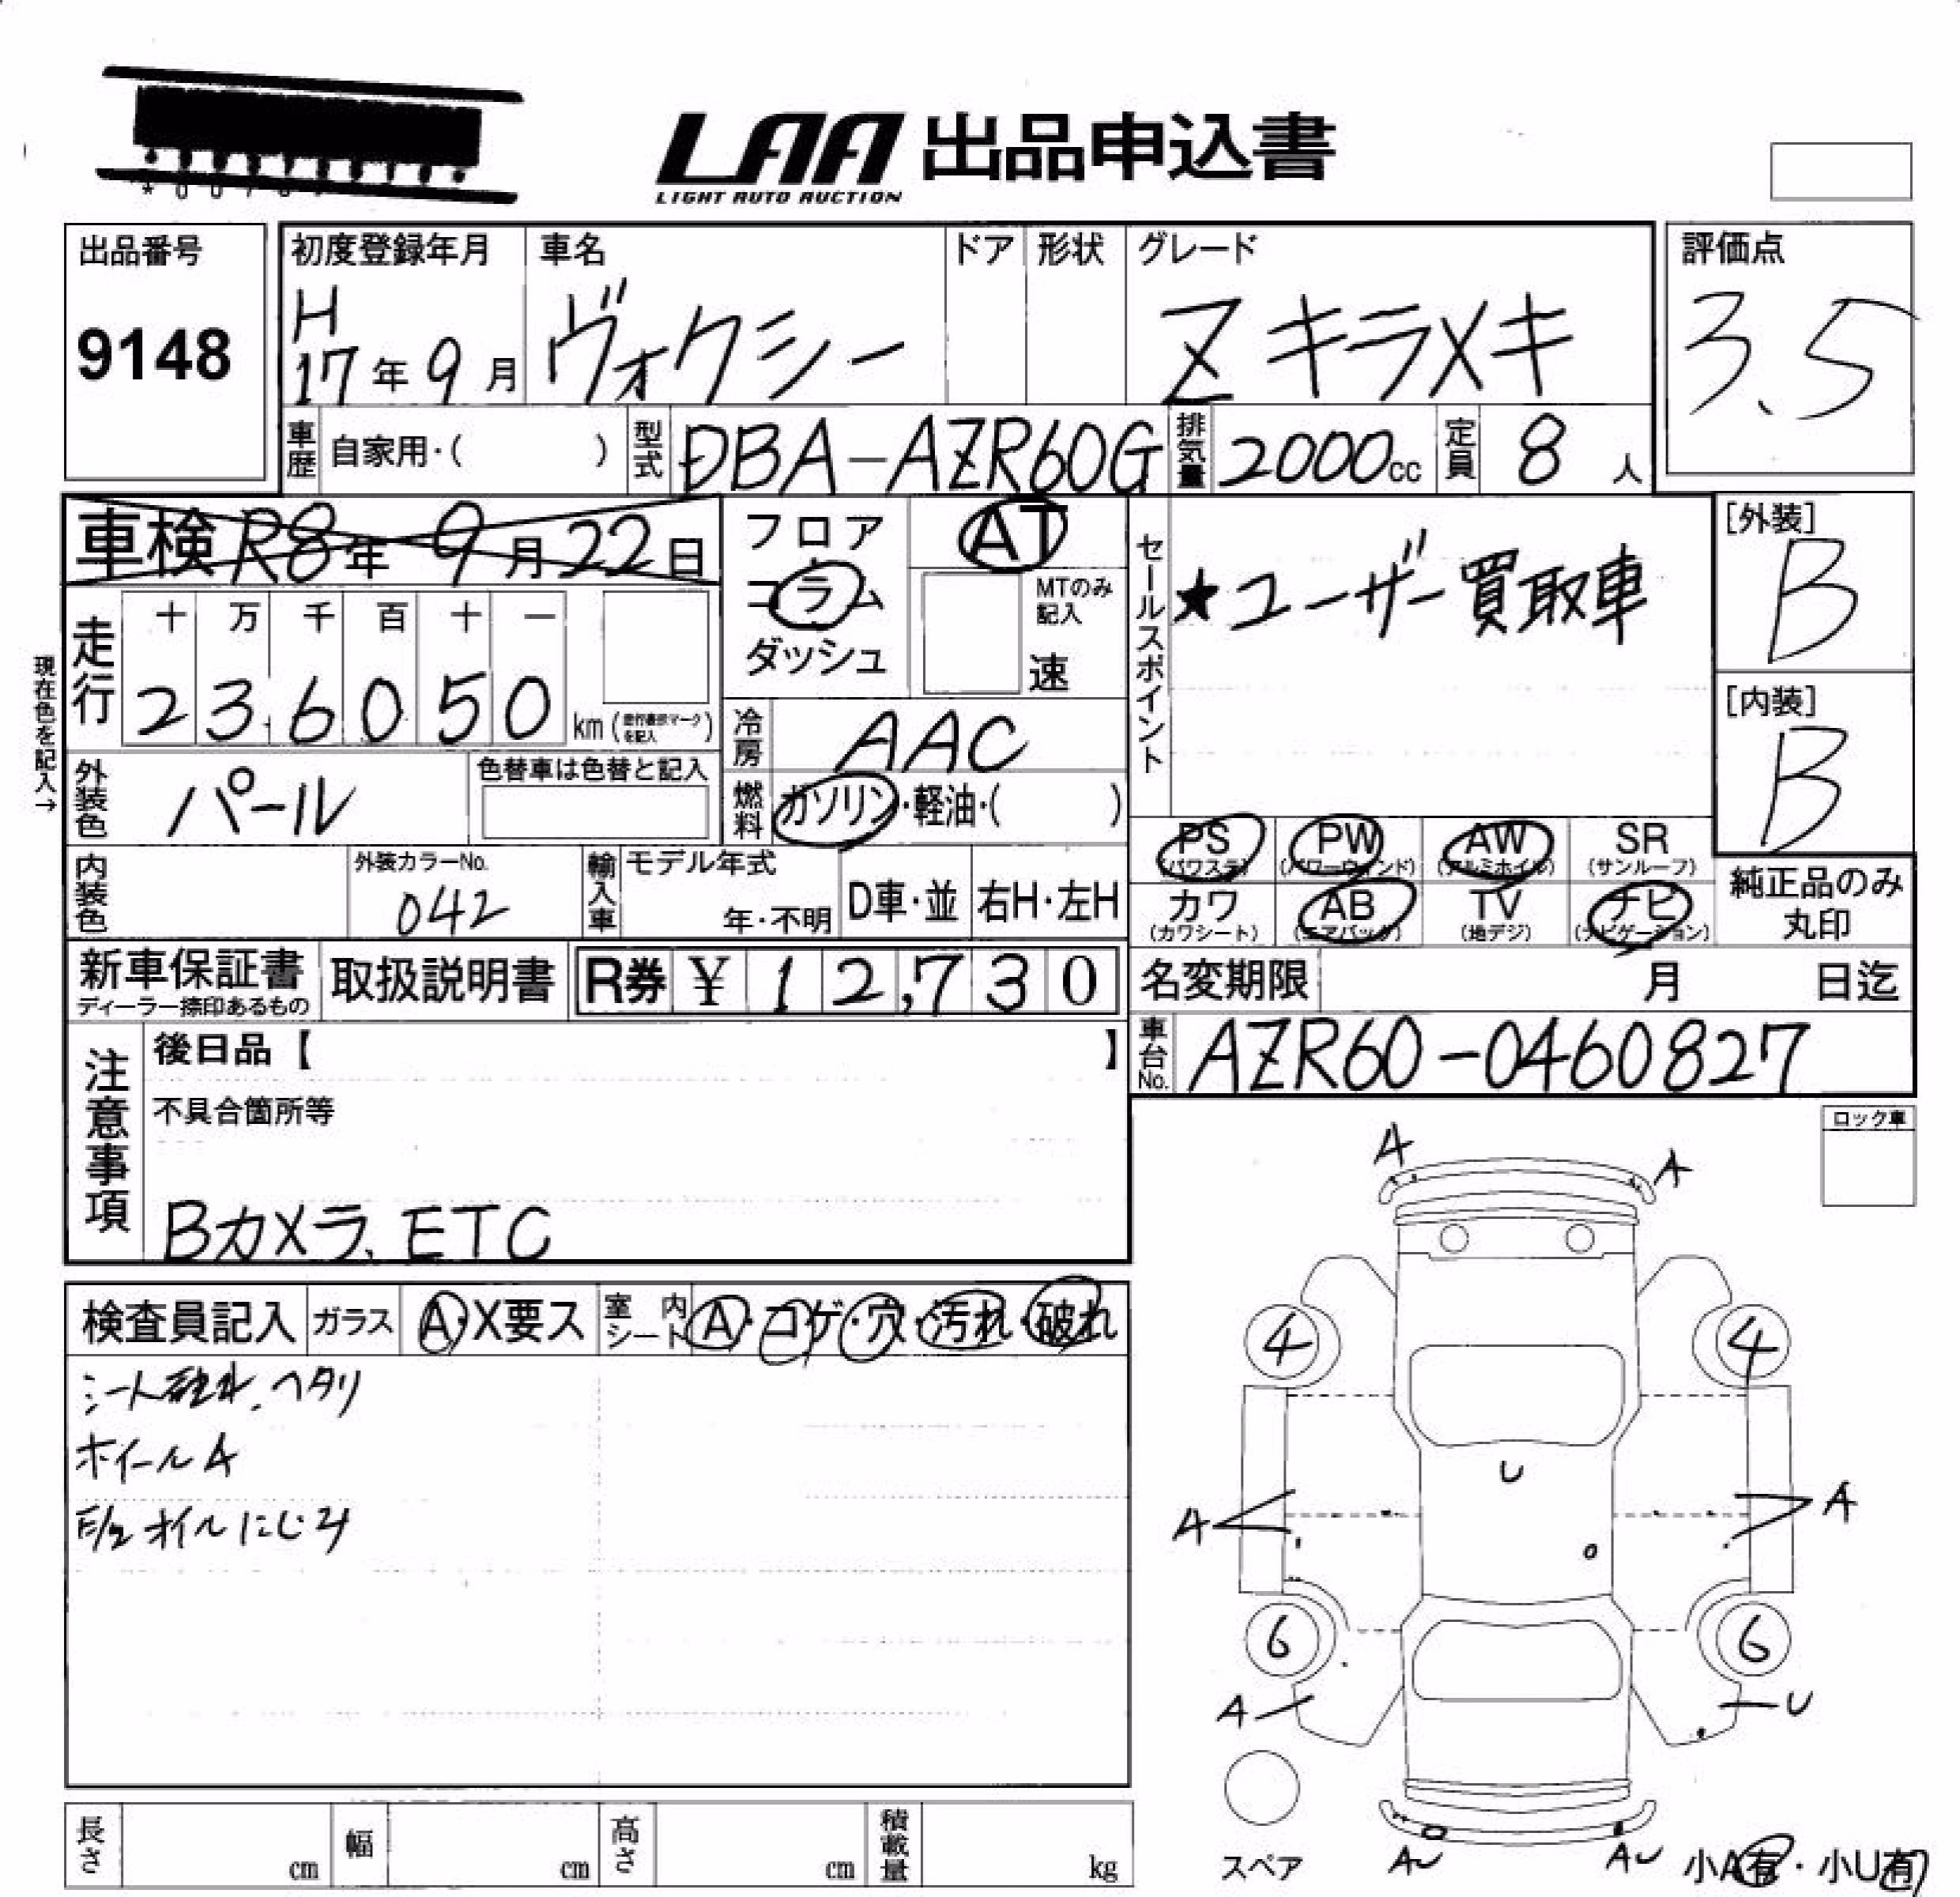 LAA 出品申込書
LIGHT AUTO AUCTION
出品番号
9148
初度登録年月
H
17年9月
車名
ヴォクシー
ドア
形状
グレード
Zキラメキ
評価点
3.5
車歴
自家用・( )
型式
DBA-AZR60G
排気量
2000cc
定員
8人
車検 R8年9月22日
フロア
コラム
ダッシュ
AT
MTのみ
記入
速
セールスポイント
★ユーザー買取車
[外装]
B
[内装]
B
現在色を記入→
走行
十 万 千 百 十 一
2 3 6 0 5 0
km(走行書択マークを記入)
冷房
AAC
燃料
ガソリン・軽油・( )
外装色
パール
色替車は色替と記入
内装色
外装カラーNo.
042
輸入車
モデル年式
年・不明
D車・並
右H・左H
PS
(パワステ)
PW
(パワーウィンド)
AW
(アルミホイル)
SR
(サンルーフ)
カワ
(カワシート)
AB
(エアバック)
TV
(地デジ)
ナビ
(ナビゲーション)
純正品のみ
丸印
新車保証書
ディーラー捺印あるもの
取扱説明書
R券 ¥ 1 2,7 3 0
名変期限
月 日迄
車台No.
AZR60-0460827
注意事項
後日品【 】
不具合箇所等
Bカメラ、ETC
ロック車
検査員記入
ガラス
A・X要ス
室内
シート
A・コゲ・穴・汚れ・破れ
シート破れ、ヘタリ
ホイールA
E/g オイルにじみ
A
A
4
4
U
A
A
6
6
A
U
スペア
AU
AU
小A有・小U有
長さ
cm
幅
cm
高さ
cm
積載量
kg